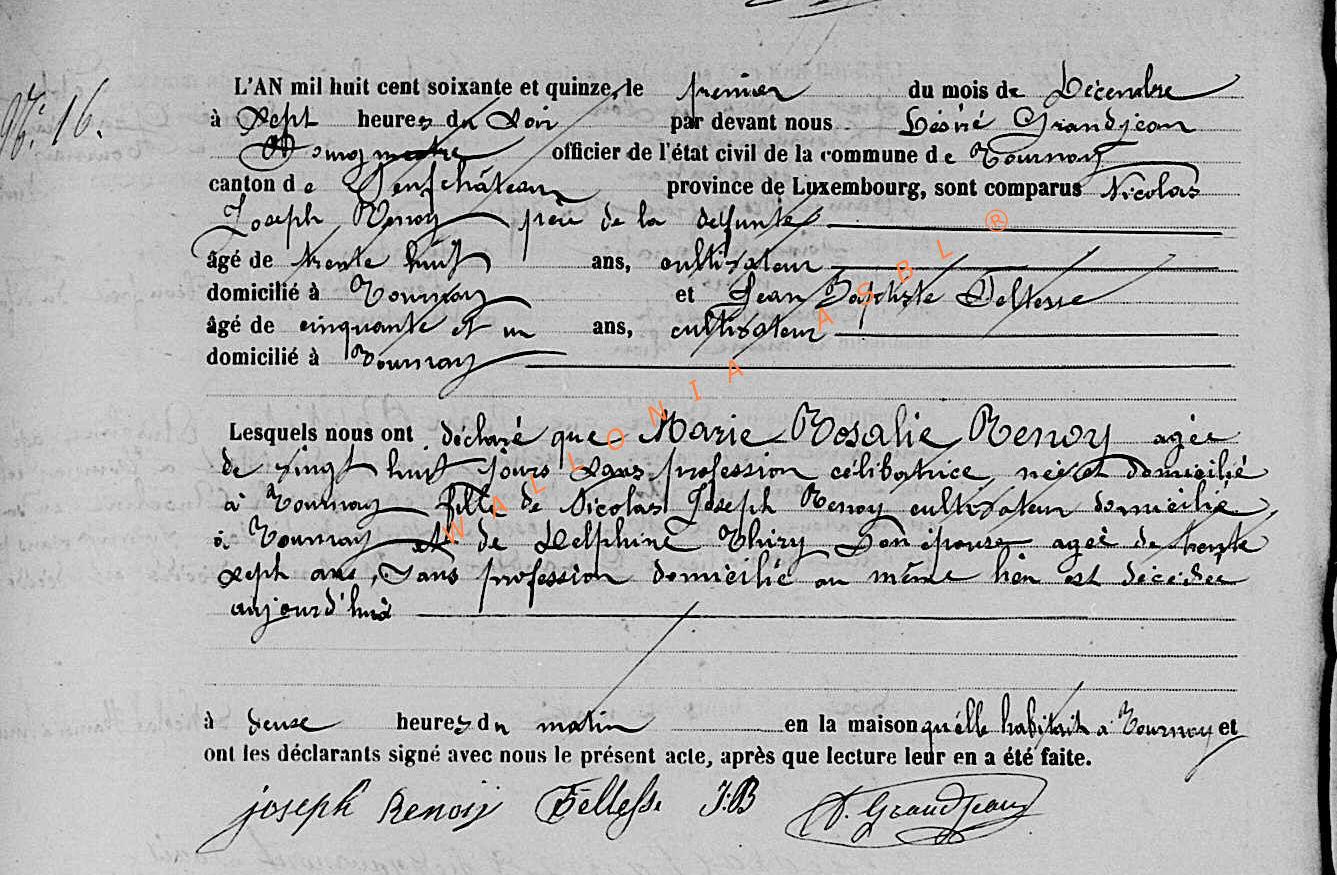 N.° 16.
L'AN mil huit cent soixante et quinze, le premier du mois de Décembre
à Sept heures du Soir par devant nous Désiré Grandjean
Bourgmestre officier de l'état civil de la commune de Tournay
canton de Neufchâteau province de Luxembourg, sont comparus Nicolas
Joseph Renoy père de la defunte
âgé de trente huit ans, cultivateur
domicilié à Tournay et Jean Baptiste
âgé de cinquante et un ans, cultivateur
domicilié à Tournay
Lesquels nous ont déclaré que Marie Rosalie Renoy agée
de vingt huit jours Sans profession célibatrice, née et domicilié
à Tournay fille de Nicolas Joseph Renoy cultivateur domicilié
à Tournay et de Delphine Thiry Son épouse ageé de trente
Sept ans, Sans profession domicilié au même lieu est décédée
aujourd'hui
à deuse heures du matin en la maison qu'elle habitait à Tournay et
ont les déclarants signé avec nous le présent acte, après que lecture leur en a été faite.
joseph Renoy J:B D. Grandjean
WALLONIA ASBL ®